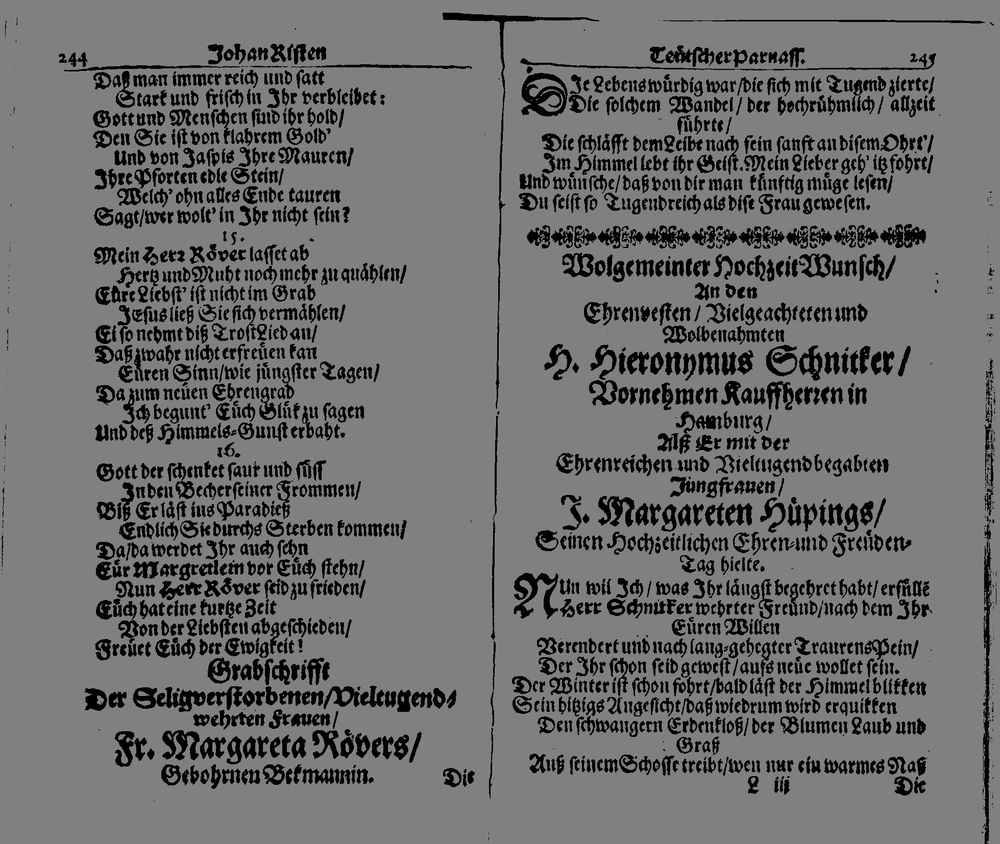 244 Johan Risten
Daß man immer reich und satt
Stark und frisch in Ihr verbleibet:
Gott und Menschen sind ihr hold/
Den Sie ist von klahrem Gold'
Und von Jaspis Ihre Mauren/
Ihre Pforten edle Stein/
Welch' ohn alles Ende tauren
Sagt/wer wolt' in Ihr nicht sein?
15.
Mein Herr Röver lasset ab
Hertz und Muht noch mehr zu quählen/
Eüre Liebst' ist nicht im Grab
JEsus ließ Sie sich vermählen/
Ei so nehmt diß TrostLied an/
Daß zwahr nicht erfreüen kan
Eüren Sinn/wie jüngster Tagen/
Da zum neüen Ehrengrad
Ich begunt' Eüch Glük zu sagen
Und deß Himmels-Gunst erbaht.
16.
Gott der schenket saur und süss
In den Becher seiner Frommen/
Biß Er läst ins Paradieß
Endlich Sie durchs Sterben kommen/
Da/da werdet Ihr auch sehn
Eür Margretlein vor Eüch stehn/
Nun Herr Röver seid zu frieden/
Eüch hat eine kurtze Zeit
Von der Liebsten abgeschieden/
Freüet Eüch der Ewigkeit!
Grabschrifft
Der Seligverstorbenen/Vieltugend-
wehrten Frauen/
Fr. Margareta Rövers/
Gebohrnen Bekmannin.
Die
Teütscher Parnass. 245
DIe Lebens würdig war/die sich mit Tugend zierte/
Die solchem Wandel/ der hochrühmlich/ allzeit
führte/
Die schläfft dem Leibe nach sein sanft an disem Ohrt'/
Im Himmel lebt ihr Geist. Mein Lieber geh' itz fohrt/
Und wünsche/daß von dir man künftig müge lesen/
Du seist so Tugendreich als dise Frau gewesen.
Wolgemeinter HochzeitWunsch/
An den
Ehrenvesten/ Vielgeachteten und
Wolbenahmten
H. Hieronymus Schnitker/
Vornehmen Kauffherren in
Hamburg/
Alß Er mit der
Ehrenreichen und Vieltugendbegabten
Jungfrauen/
J. Margareten Hüpings/
Seinen Hochzeitlichen Ehren-und Freüden-
Tag hielte.
NUn wil Ich/ was Ihr längst begehret habt/ erfülle
Herr Schnitker wehrter Freünd/nach dem Ihr
Eüren Willen
Verendert und nach lang-gehegter TraurensPein/
Der Ihr schon seid gewest/aufs neüe wollet sein.
Der Winter ist schon fohrt/bald läst der Himmel blikken
Sein hitzigs Angesicht/daß wiedrum wird erquikken
Den schwangern Erdenkloß/der Blumen Laub und
Graß
Auß seinem Schosse treibt/wen nur ein warmes Naß
L iij Die